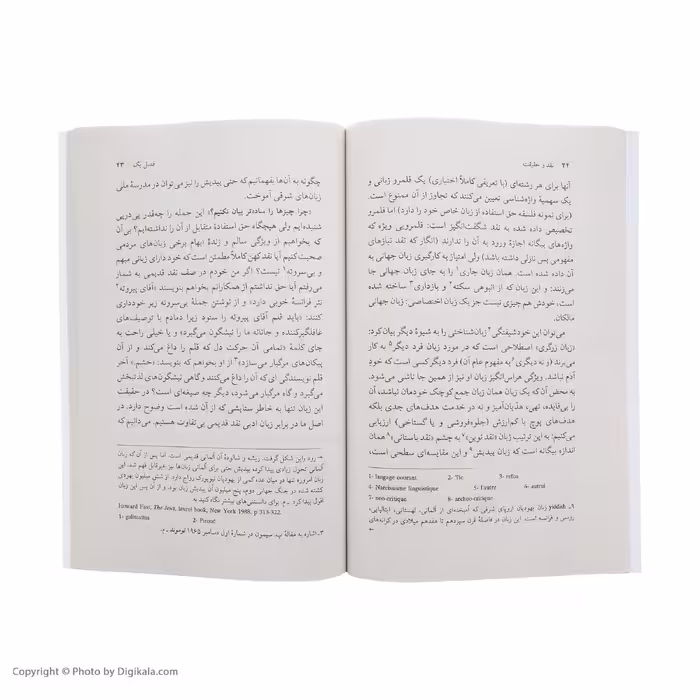 ۴۲ نقد و حقیقت
آنها برای هر رشته‌ای (با تعریفی کاملاً اختیاری) یک قلمرو زبانی و
یک سهمیهٔ واژه‌شناسی تعیین می‌کنند که تجاوز از آن ممنوع است.
(برای نمونه فلسفه حق استفاده از زبان خاص خود را دارد) اما قلمرو
تخصیص داده شده به نقد شگفت‌انگیز است: قلمرویی ویژه که
واژه‌های بیگانه اجازهٔ ورود به آن را ندارند (انگار که نقد نیازهای
مفهومی پس نازلی داشته باشد) ولی امتیاز به کارگیری زبان جهانی به
آن داده شده است. همان زبان جاری¹ را به جای زبان جهانی جا
می‌زنند؛ و این زبان که از انبوهی سکته² و بازداری³ ساخته شده
است، خودش هم چیزی نیست جز یک زبان اختصاصی: زبان جهانی
مالکان.
می‌توان این خودشیفتگی⁴ زبان‌شناختی را به شیوهٔ دیگر بیان کرد:
«زبان زرگری» اصطلاحی است که در مورد زبان فرد دیگر⁵ به کار
می‌برند (و نه دیگری⁶ به مفهوم عام آن) فرد دیگر کسی است که خودِ
آدم نباشد. ویژگی هراس‌انگیز زبان او نیز از همین جا ناشی می‌شود.
به محض آن که یک زبان همان زبان جمع کوچک خودمان نباشد،
را بی‌فایده، تهی، هذیان‌آمیز و نه در خدمت هدف‌های جدی بلکه
هدف‌های پوچ یا کم‌ارزش (جلوه‌فروشی و یا گستاخی) ارزیابی
می‌کنیم؛ به این ترتیب زبان «نقد نوین»⁷ به چشم «نقد باستانی»⁸ همان
اندازه بیگانه است که زبان ییدیش⁹ و این مقایسه‌ای سطحی است،
1- langage courant 2- Tic 3- refus
4- Narcissisme linguistique 5- l'autre 6- autrui
7- neo-critique 8- archeo-critique
۹ـ yiddish زبان یهودیان اروپای شرقی که آمیخته‌ای از آلمانی، لهستانی، ایتالیایی،
روسی و فرانسه است. این زبان در فاصلهٔ قرن سیزدهم تا هفدهم میلادی در کرانه‌های
←
فصل یک ۴۳
چگونه به آن‌ها بفهمانیم که حتی ییدیش را نیز می‌توان در مدرسهٔ ملی
زبان‌های شرقی آموخت.
«چرا چیزها را ساده‌تر بیان نکنیم؟» این جمله را چه‌قدر پی‌درپی
شنیده‌ایم ولی هیچگاه حق استفادهٔ متقابل از آن را نداشته‌ایم؟ بی‌آن
که بخواهیم از ویژگی سالم و زندهٔ ابهام برخی زبان‌های مردمی
صحبت کنیم آیا نقد کهن کاملاً مطمئن است که خود دارای زبانی مبهم
و بی‌سروته¹ نیست؟ اگر من خودم در صف نقد قدیمی به شمار
می‌رفتم آیا حق نداشتم از همکارانم بخواهم بنویسند «آقای پیروئه²
نثر فرانسهٔ خوبی دارد» و از نوشتن جملهٔ بی‌سروته زیر خودداری
کنند: «باید قلم آقای پیروئه را ستود زیرا دمادم با توصیف‌های
غافلگیرکننده و جانانه ما را نیشگون می‌گیرد» و یا خیلی راحت به
جای کلمهٔ «تمامی آن حرکت دل که قلم را داغ می‌کند و از آن
پیکان‌های مرگبار می‌سازد»³ از او بخواهم که بنویسد: «خشم.» آخر
قلم نویسندگی‌ای که آن را داغ می‌کنند و گاهی نیشگون‌های لذتبخش
می‌گیرد و گاه مرگبار می‌شود، دیگر چه صیغه‌ای است؟ در حقیقت
این زبان تنها به خاطر ستایشی که از آن شده است وضوح دارد. در
اصل ما در برابر زبان ادبی نقد قدیمی بی‌تفاوت هستیم. می‌دانیم که
→ رود راین شکل گرفت. ریشه و شالودهٔ آن آلمانی قدیمی است. اما پس از آن که زبان
آلمانی تحول زیادی پیدا کرد، ییدیش حتی برای آلمانی زبان‌ها نیز غیرقابل فهم شد. این
زبان امروزه تنها در میان عده کمی از یهودیان نیویورک رواج دارد. از شش میلیون یهودی
کشته شده در جنگ جهانی دوم، پنج میلیون آن ییدیش زبان بود، و از آن پس این زبان
افول پیدا کرد ـ م. برای دانستنی‌های بیشتر نگاه کنید به
Howard Fast, The Jews, laurel book, New York 1988. p:313-322.
1- galimatias 2- Piroué
۳ـ اشاره به مقالهٔ پ. سیمون در شمارهٔ اول دسامبر ۱۹۶۵ لوموند ـ م.
Copyright © Photo by Digikala.com